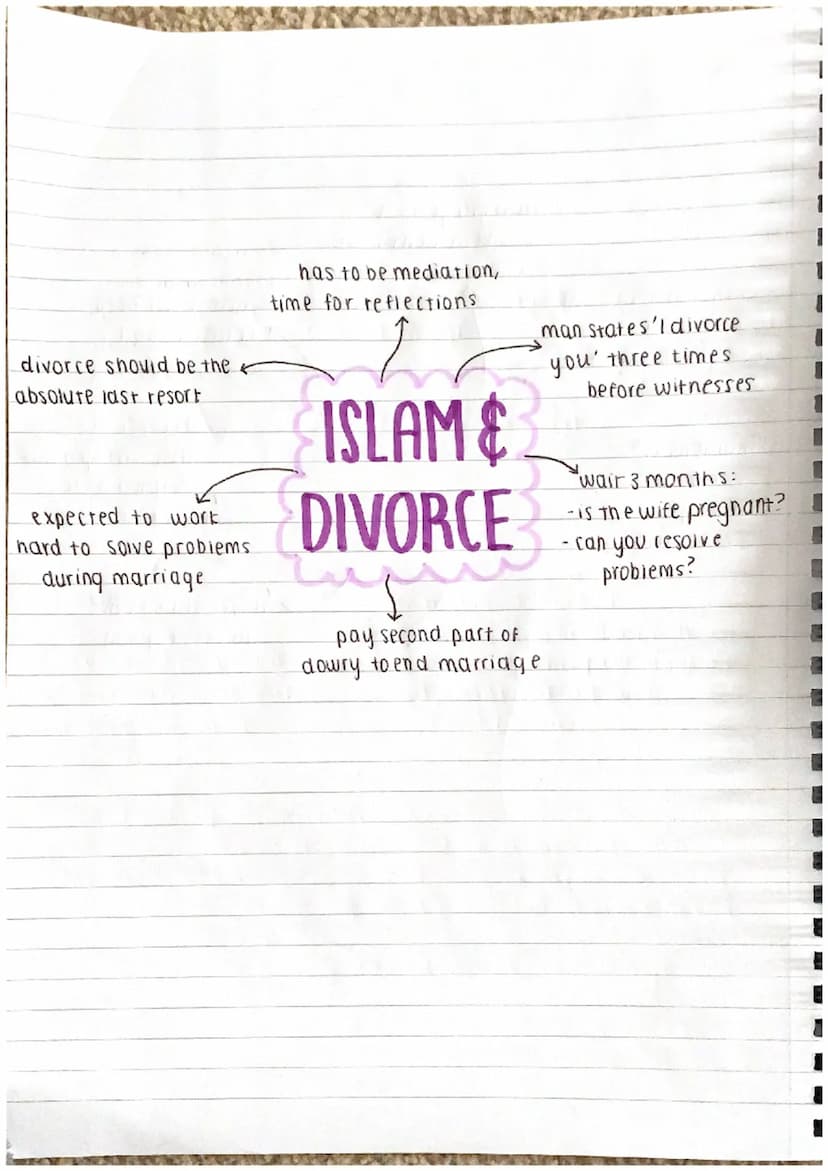 ISLAM &
DIVORCE
has to be mediation,
time for reflections
man states 'I divorce
you' three times
before witnesses
wait 3 months:
- is the wife pregnant?
- can you resolve
problems?
pay second part of
dowry to end marriage
expected to work
hard to solve problems
during marriage
divorce should be the
absolute last resort